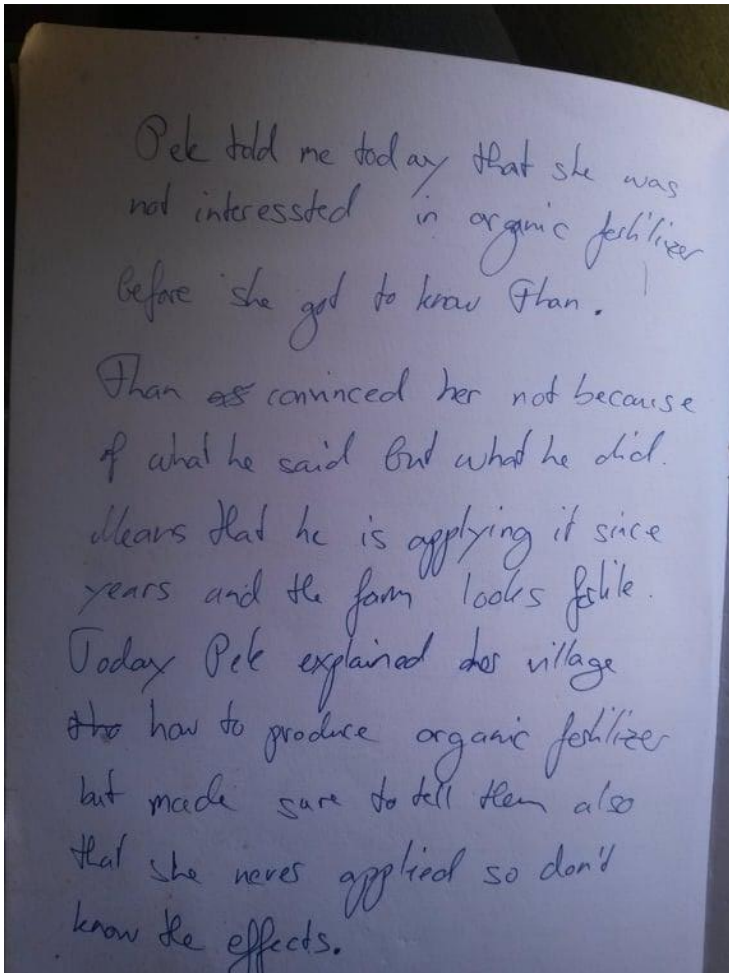 Pek told me today that she was
not interessted in organic fertilizer
before she got to know Than.
Than convinced her not because
of what he said but what he did.
Means that he is applying it since
years and the farm looks fertile.
Today Pek explained village
how to produce organic fertilizer
but made sure to tell them also
that she never applied so don't
know the effects.